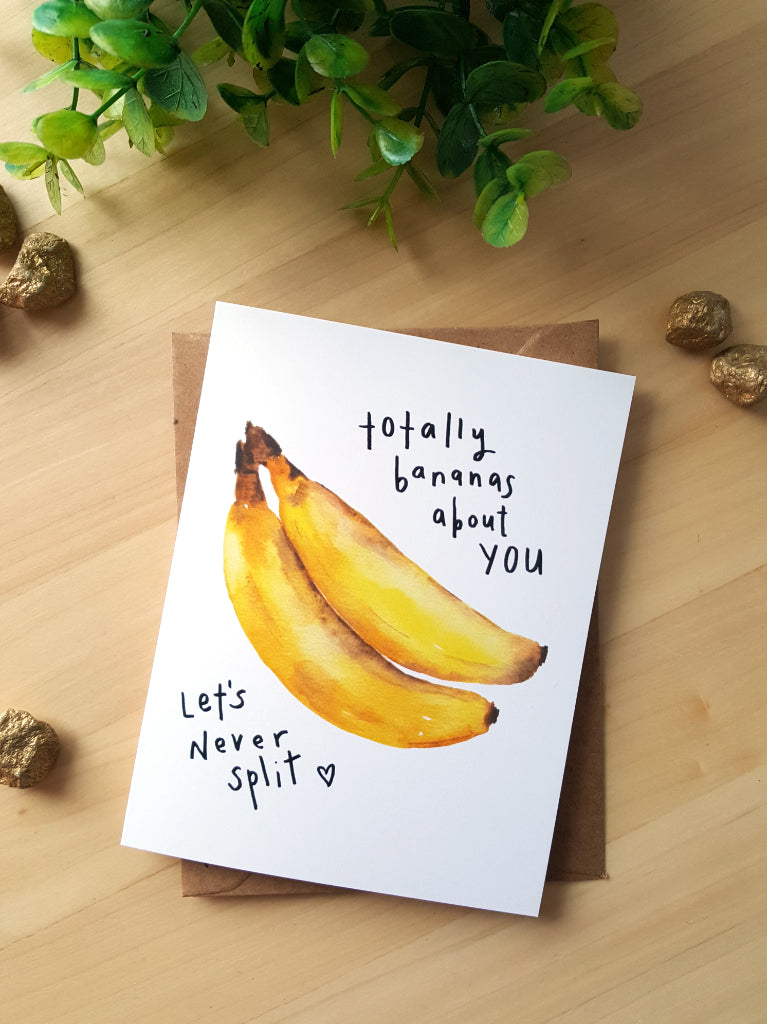 totally
bananas
about
YOU
Let's
Never
split ♡